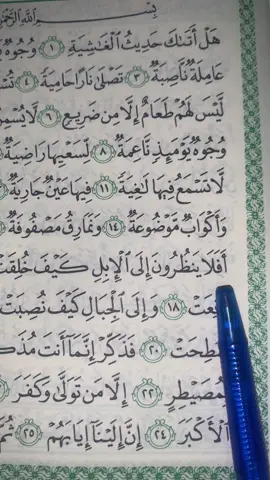 بِسْمِ اللَّهِ الرَّحْمَٰنِ
هَلْ أَتَىٰكَ حَدِيثُ الْغَاشِيَةِ ۝١ وُجُوهٌ
عَامِلَةٌ نَّاصِبَةٌ ۝٣ تَصْلَىٰ نَارًا حَامِيَةً ۝٤
لَّيْسَ لَهُمْ طَعَامٌ إِلَّا مِن ضَرِيعٍ ۝٦ لَّا
وُجُوهٌ يَوْمَئِذٍ نَّاعِمَةٌ ۝٨ لِّسَعْيِهَا رَاضِيَةٌ
لَّا تَسْمَعُ فِيهَا لَٰغِيَةً ۝١١ فِيهَا عَيْنٌ جَارِيَةٌ
وَأَكْوَابٌ مَّوْضُوعَةٌ ۝١٤ وَنَمَارِقُ مَصْفُوفَةٌ
أَفَلَا يَنظُرُونَ إِلَى الْإِبِلِ كَيْفَ خُلِقَتْ
۝١٨ وَإِلَى الْجِبَالِ كَيْفَ نُصِبَتْ
۝٢٠ فَذَكِّرْ إِنَّمَا أَنتَ
۝٢٢ إِلَّا مَن تَوَلَّىٰ وَكَفَرَ
الْأَكْبَرَ ۝٢٤ إِنَّ إِلَيْنَا إِيَابَهُمْ ۝٢٥ ثُمَّ